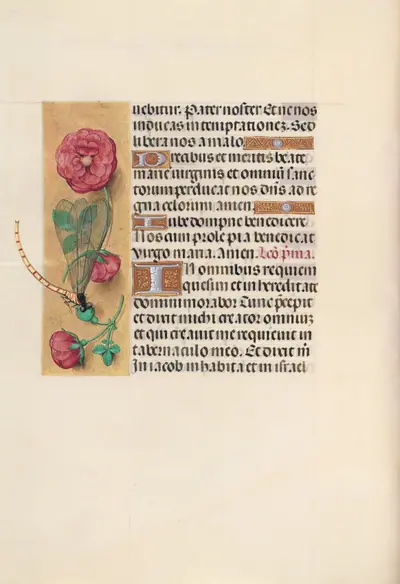 uebitur. Pater noster Et ne nos
inducas in temptationez. Sed
libera nos a malo
Precibus et meritis beate
marie virginis et omniũ sanc
torum perducat nos dñs ad re
gna celorum amen.
Iube dompne benedicere
Nos cum prole pia benedicat
virgo maria. Amen. Lcõ p̃ma.
In omnibus requiem
quesiui et in hereditate
domini morabor Tunc precepit
et dixit michi creator omniuz
et qui creauit me requieuit in
tabernaculo meo. Et dixit m̃
In iacob inhabita et in israel